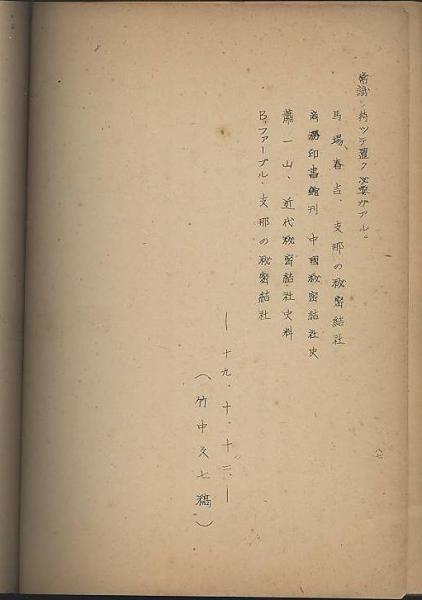 常識ハ持ツテ置ク必要ガアル。
馬場春吉、支那の秘密結社
商務印書館刊 中國秘密結社史
蕭一山、近代秘密結社史料
B.ファーブル・支那の秘密結社
— 十九.十.十三.—
(竹中久七稿)